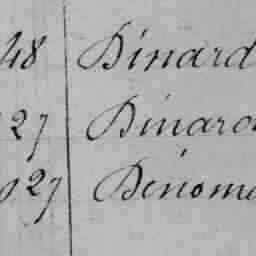 48 Binard
27 Binard
27 Benome